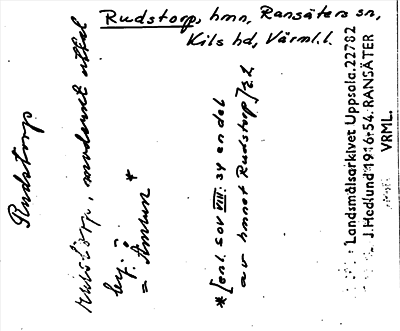 Rudstorp, hmn, Ransäters sn,
Kils hd, Värml. l.
Rudstorp
rustorp, modernt uttal
by.
= Åmtun *
*[enl. SOV VIII: 34 en del
av hmnet Rudstorp] z.h.
Landsmålsarkivet Uppsala. 22782
J. Hedlund 1916-54. RANSÄTER
VRML.